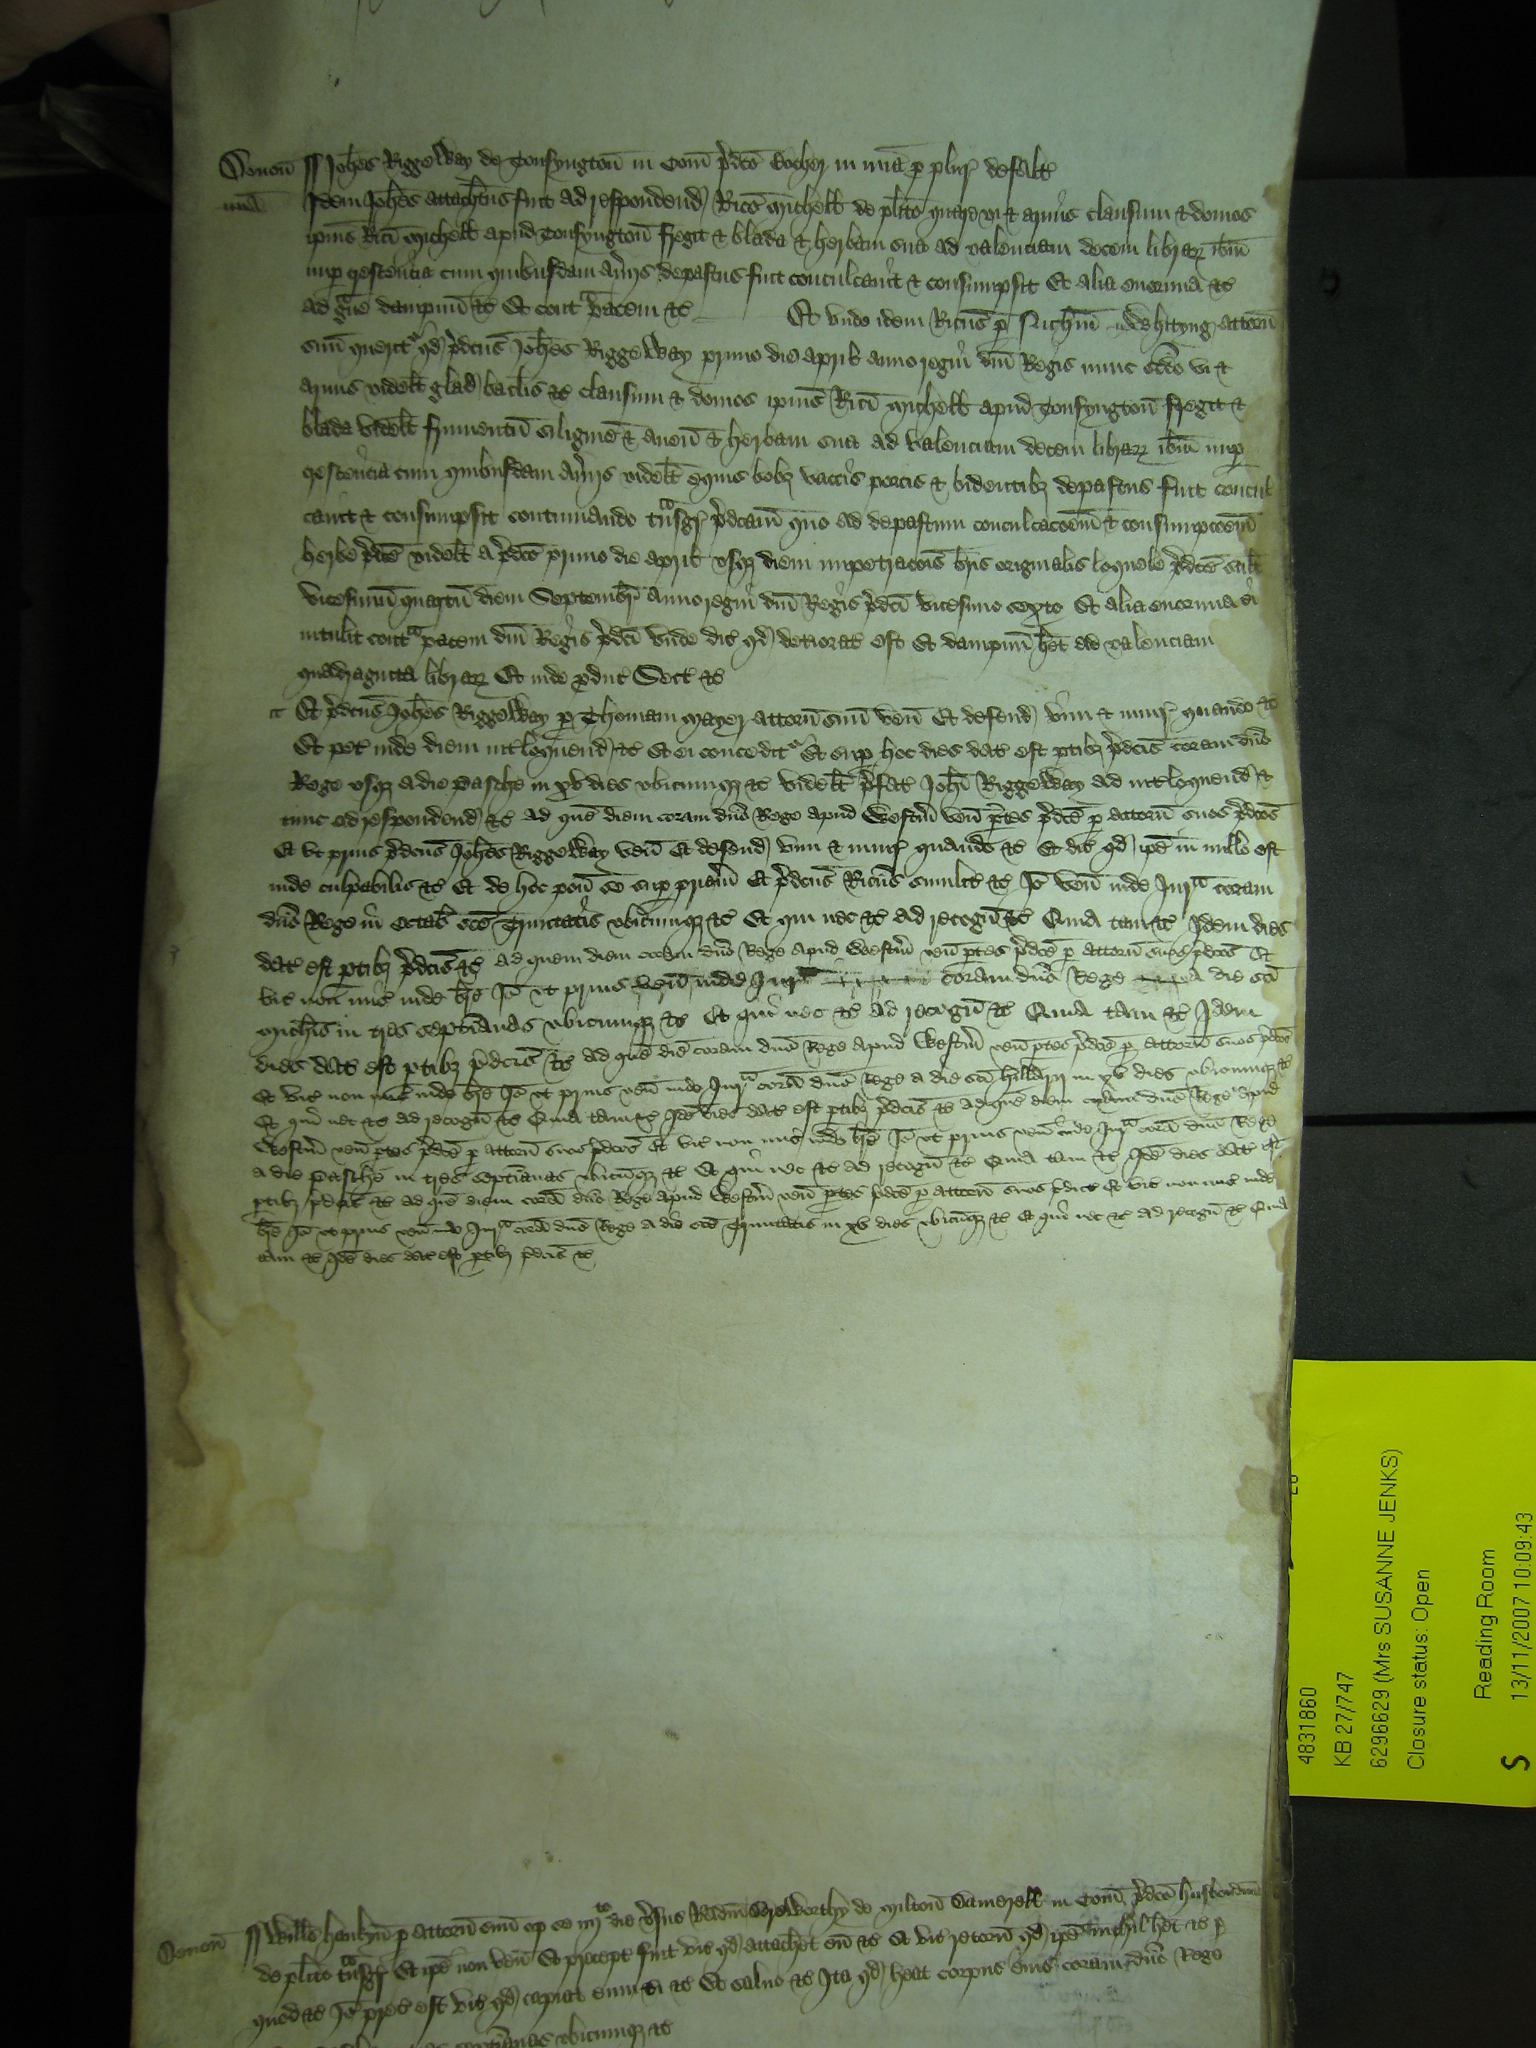 Deuon̄ Joh̄es Riggeway de Tonsyngton̄ in Com̄ p̄dc̄o Bocher in mīa p plur̄ defalt̄
mīa Idem Joh̄es attach̄tus fuit ad respondend̄ Ric̄o Michell de pl̄ito quare vi & armis clausum & domos
ip̄ius Ric̄i Michell apud Tonsyngton̄ fregit & blada & herbam sua ad valenciam decem librar̄ ib̄m
nup̄ crescencia cum quibusdam aūijs depastus fuit conculcauit & consumpsit Et alia enormia &c̄
ad g̃ue dampnū &c̄ Et cont̃ pacem &c̄ Et vnde idem Ric̄us p attorn̄
suū querit̃ qd̄ p̄dc̄us Joh̄es Riggeway primo die april̄ anno regni dn̄i Regis nunc vi &
armis videlt̄ glad̄ bac̄lis &c̄ clausum & domos ip̄ius Ric̄i Michell apud Tonsyngton̄ fregit &
blada videlt̄ frumentū siligine & auen̄ & herbam sua ad valenciam decem librar̄ ib̄m nup̄
crescencia cum quibusdam aūijs videlt̄ equis bobȝ vaccis porcis & bidentibȝ depastus fuit concul
cauit & consumpsit continuando tñsgr̄ p̄dcām quo ad depastum conculcacōem & consumpcōem
herbe p̄dc̄e videlt̄ a p̄dc̄o primo die april̄ vsqȝ diem impetracōis br̄is originalis loquele p̄dc̄e scilt̄
vicesimū quartū diem Septembr̄ anno regni dn̄i Regis p̄dc̄i vicesimo sexto Et alia enormia ei
intulit cont̃ pacem dn̄i Regis p̄dc̄i vnde dic̄ qd̄ deteriorat̄ est Et dampnū h̄et ad valenciam
quadraginta librar̄ Et inde p̄duc̄ Sect̄ &c̄
Et p̄dc̄us Joh̄es Riggeway p Thomam Mayer attorn̄ suū ven̄ Et defend̄ vim & iniur̄ quando &c̄
Et pet̄ inde diem int̄loquend̄ &c̄ Et ei concedit̃ Et sup hoc dies dat̄ est ptibȝ p̄dc̄is coram dn̄o
Rege vsqȝ a die Pasche in xv dies vbicumqȝ &c̄ videlt̄ p̄fat̄ Joh̄i Riggeway ad int̄loquend̄ &
tunc ad respondend̄ &c̄ ad que diem coram dn̄o Rege apud Westm̄ ven̄ ptes p̄dc̄e p attorn̄ suos p̄dc̄os
Et vt prius p̄dc̄us Joh̄es Riggeway ven̄ Et defend̄ vim & iniur̄ quando &c̄ Et dic̄ qd̄ ip̄e in nullo est
inde culpabilis &c̄ Et de hoc pon̄ se sup pr̄iam Et p̄dc̄us Ric̄us similit̄ &c̄ Iō ven̄ inde Jur̃ coram
dn̄o Rege in Octab̄ sc̄e Trinitatis vbicumqȝ &c̄ Et qui nec &c̄ ad recogn̄ &c̄ Quia tam &c̄ Idem dies
dat̄ est ptibȝ p̄dc̄is &c̄ ad quem diem coram dn̄o Rege apud Westm̄ ven̄ ptes p̄dc̄e p attorn̄ suos p̄dc̄os Et
vic̄ non mis̄ inde br̄e Iō vt prius ven̄ inde Jur̃ coram dn̄o Rege a die sc̄i
Mich̄is in tres septianas vbicumqȝ &c̄ Et qui nec &c̄ ad recogn̄ &c̄ Quia tam &c̄ Idem
dies dat̄ est ptibȝ p̄dc̄is &c̄ ad que die coram dn̄o Rege apud Westm̄ ven̄ ptes p̄dc̄e p attorn̄ suos p̄dc̄os
Et vic̄ non mis̄ inde br̄e Iō vt prius ven̄ inde Jur̃ corā dn̄o Rege a die sc̄i Hillarij in xv dies vbicumqȝ &c̄
Et qui nec &c̄ ad recogn̄ &c̄ Quia tam &c̄ Idē dies dat̄ est ptibȝ p̄dc̄is &c̄ ad que diem coram dn̄o Rege apud
Westm̄ ven̄ ptes p̄dc̄e p attorn̄ suos p̄dc̄os Et vic̄ non mis̄ inde br̄e Iō vt prius ven̄ inde Jur̃ corā dn̄o Rege
a die Pasche in tres septianas vbicūqȝ &c̄ Et qui nec &c̄ ad recogn̄ &c̄ Quia tam &c̄ Idē dies dat̄ est
ptibȝ p̄dc̄is &c̄ ad que diem corā dn̄o Rege apud Westm̄ ven̄ ptes p̄dc̄e p attorn̄ suos p̄dict̄ Et vic̄ non mis̄ inde
br̄e Iō vt prius ven̄ inde Jur̃ corā dn̄o Rege a die sc̄e Trinitatis in xv dies vbicūqȝ &c̄ Et qui nec &c̄ ad recogn̄ &c̄ Quia
tam &c̄ Idē dies dat̄ est ptibȝ p̄dc̄is &c̄
Deuon̄ Wills Hankyn̄ p attorn̄ suū op se iiij^to die v̄sus de Milton̄ Damerell in Com̄ p̄dc̄o husbondman̄
de pl̄ito tñsgr̄ Et ip̄e non ven̄ Et precept̄ fuit vic̄ qd̄ attach̄et eū &c̄ Et vic̄ retorn̄ qd̄ ip̄e nichil h̄et &c̄ p
quod &c̄ Iō prec̄ est vic̄ qd̄ capiat eum si &c̄ Et saluo &c̄ Ita qd̄ heat corpus eius coram dn̄o Rege
septianas vbicumqȝ &c̄
4831860
KB 27/747
6296629 (Mrs SUSANNE JENKS)
Closure status: Open
Reading Room
S 13/11/2007 10:09:43